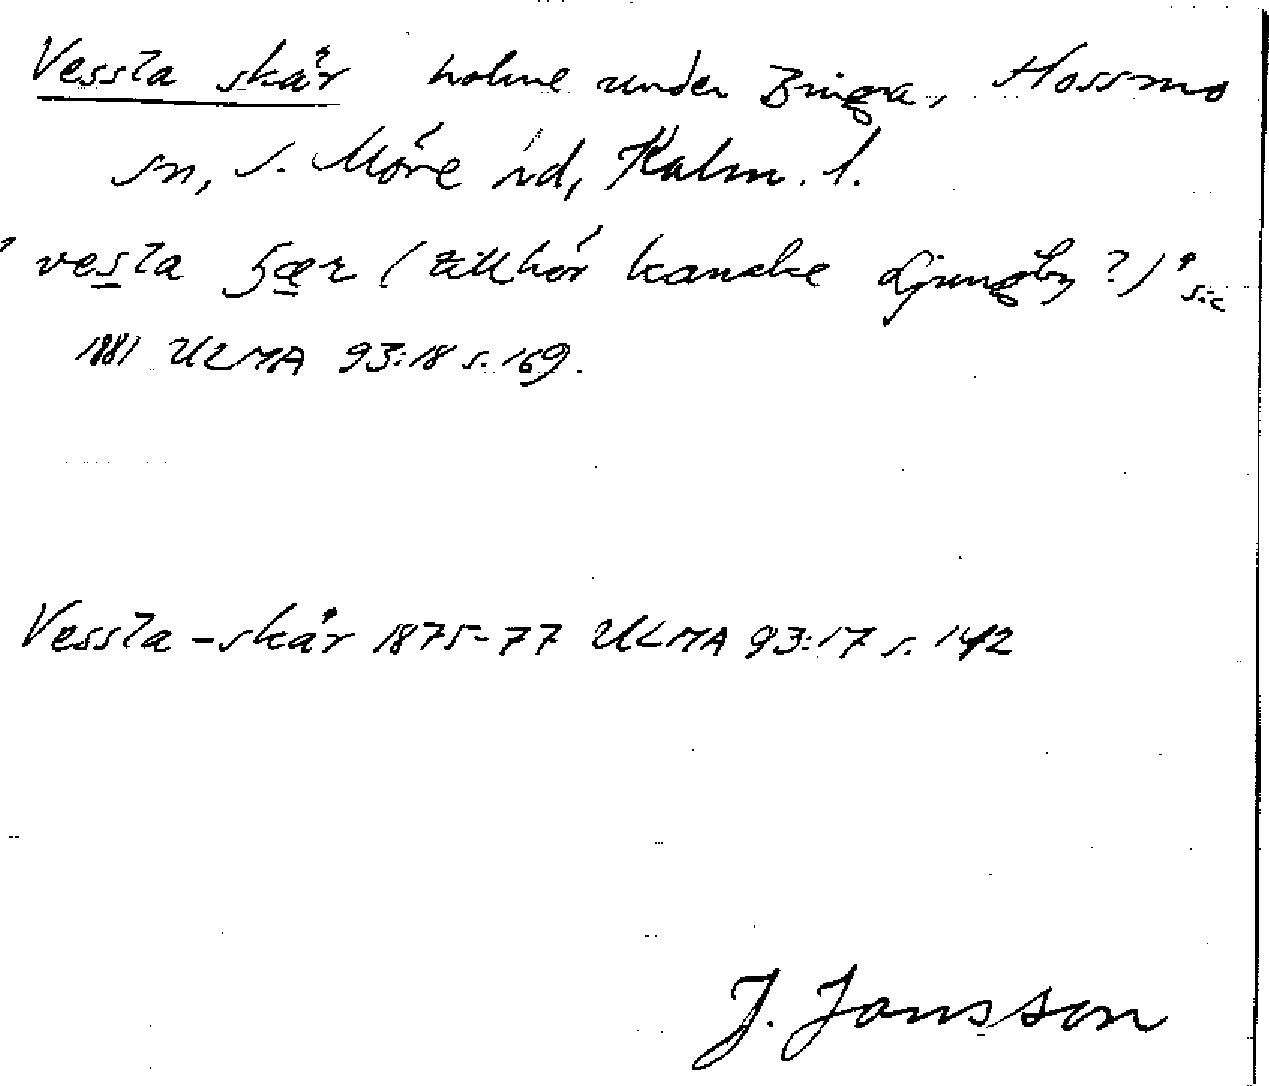 Vessla skär holme under Binga, Hossmo
sn, S. Möre hd, Kalm. l.
" vesla ʃær (tillhör kanske Ljungby?)" sic
1881 ULMA 93:18 s. 169.
Vessla-skär 1875-77 ULMA 93:17 s. 142
J. Jonsson